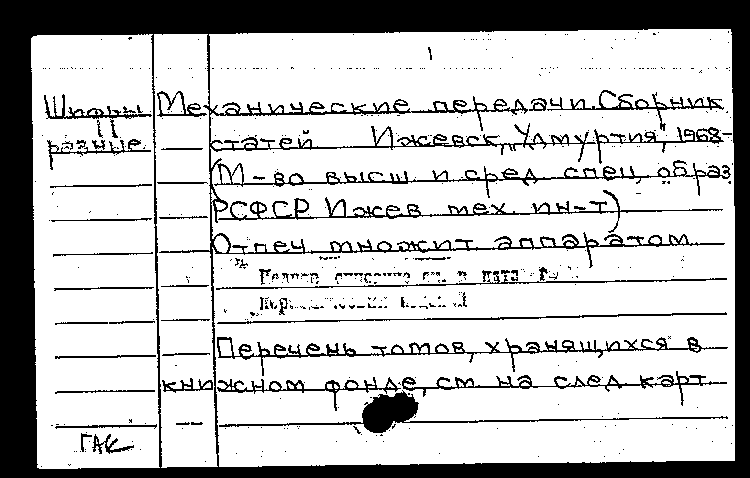 1
Шифры Механические передачи. Сборник
разные статей Ижевск, "Удмуртия", 1968-
(М-во высш и сред спец. образ
РСФСР Ижев мех. ин-т)
Отпеч. множит. аппаратом
Полное описание см. в ката
Перечень томов, хранящихся в
книжном фонде, см. на след карт
ГАК